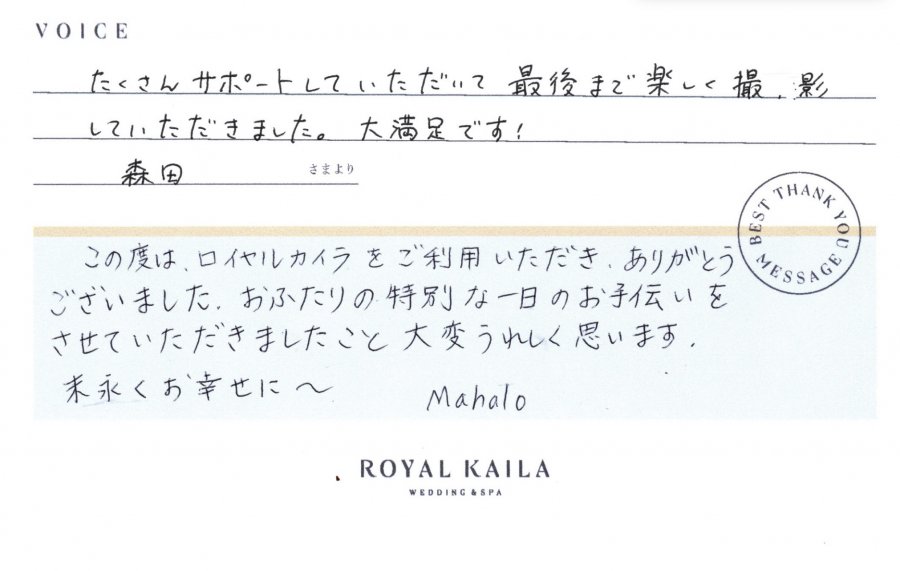 VOICE
たくさんサポートしていただいて 最後まで楽しく撮影
していただきました。大満足です!
森田 さまより
BEST THANK YOU MESSAGE
この度は、ロイヤルカイラをご利用いただき、ありがとう
ございました。おふたりの特別な一日のお手伝いを
させていただきましたこと大変うれしく思います。
末永くお幸せに〜
Mahalo
ROYAL KAILA
WEDDING & SPA